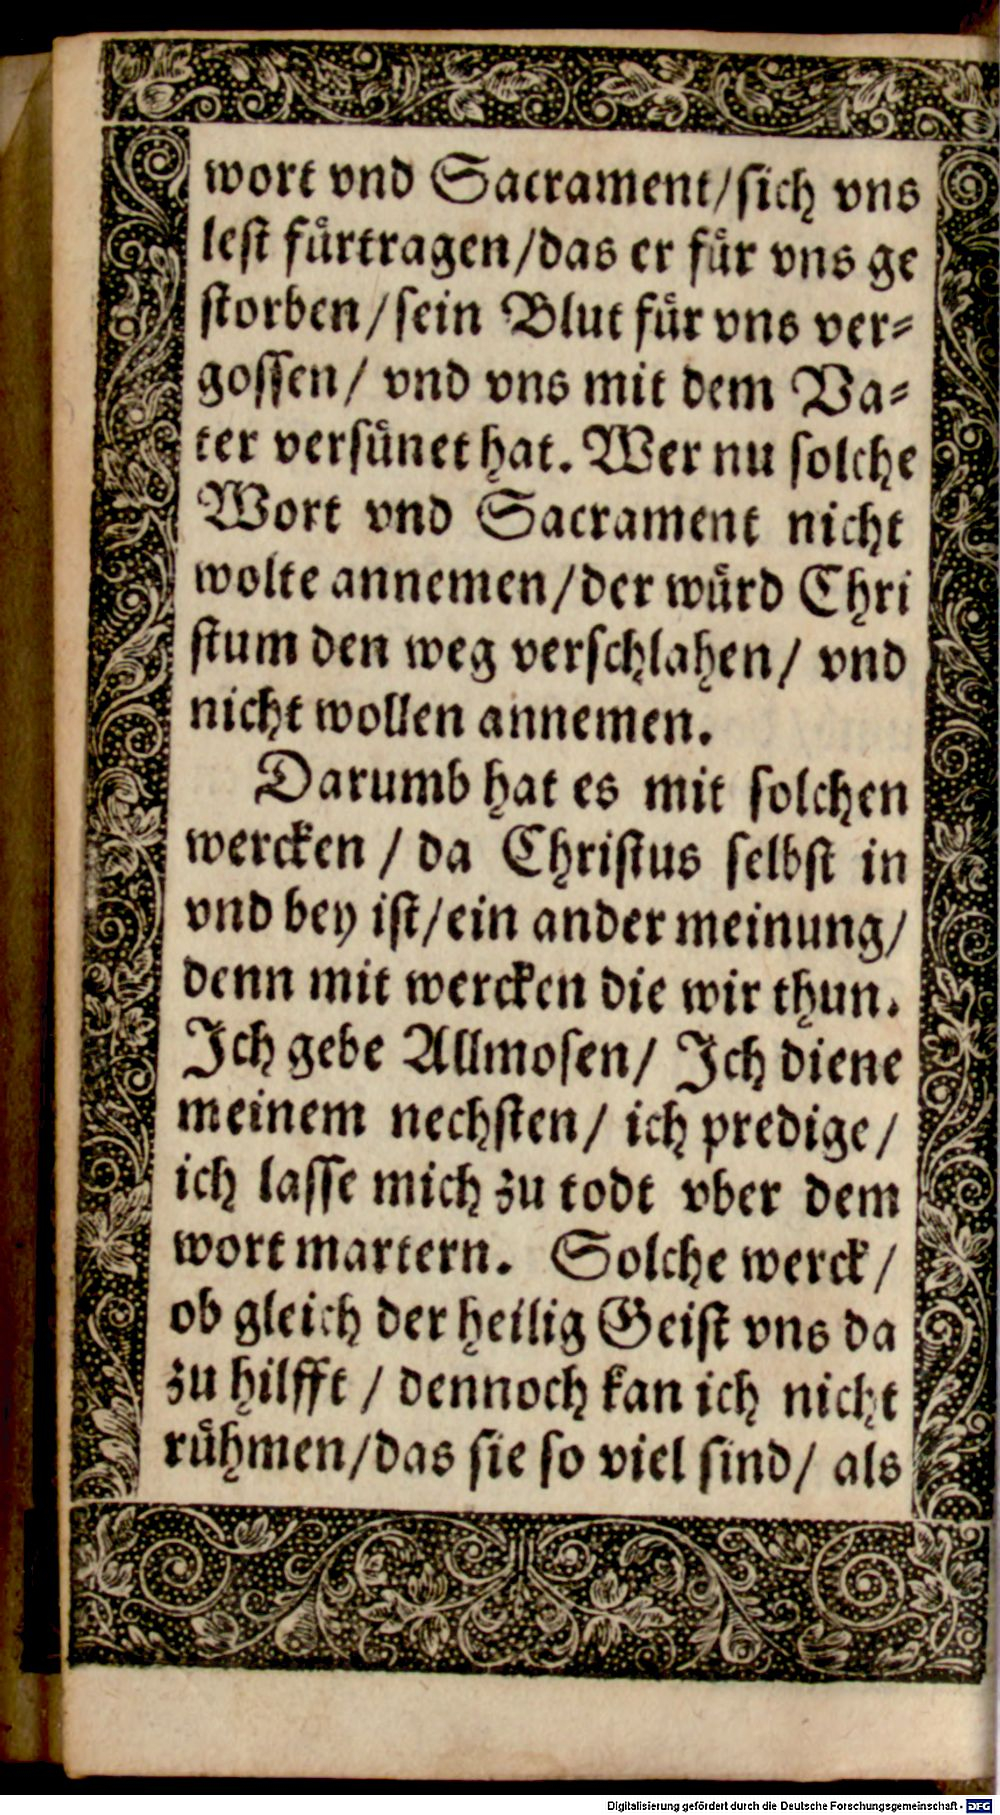 wort vnd Sacrament/sich vns
lest fürtragen/das er für vns ge
storben/sein Blut für vns ver-
gossen/ vnd vns mit dem Va-
ter versünet hat. Wer nu solche
Wort vnd Sacrament nicht
wolte annemen/der würd Chri
stum den weg verschlahen/ vnd
nicht wollen annemen.
Darumb hat es mit solchen
wercken / da Christus selbst in
vnd bey ist/ein ander meinung/
denn mit wercken die wir thun.
Ich gebe Allmosen/ Ich diene
meinem nechsten/ ich predige/
ich lasse mich zu todt vber dem
wort martern. Solche werck/
ob gleich der heilig Geist vns da
zu hilfft / dennoch kan ich nicht
rühmen/das sie so viel sind/ als
Digitalisierung gefördert durch die Deutsche Forschungsgemeinschaft - DFG